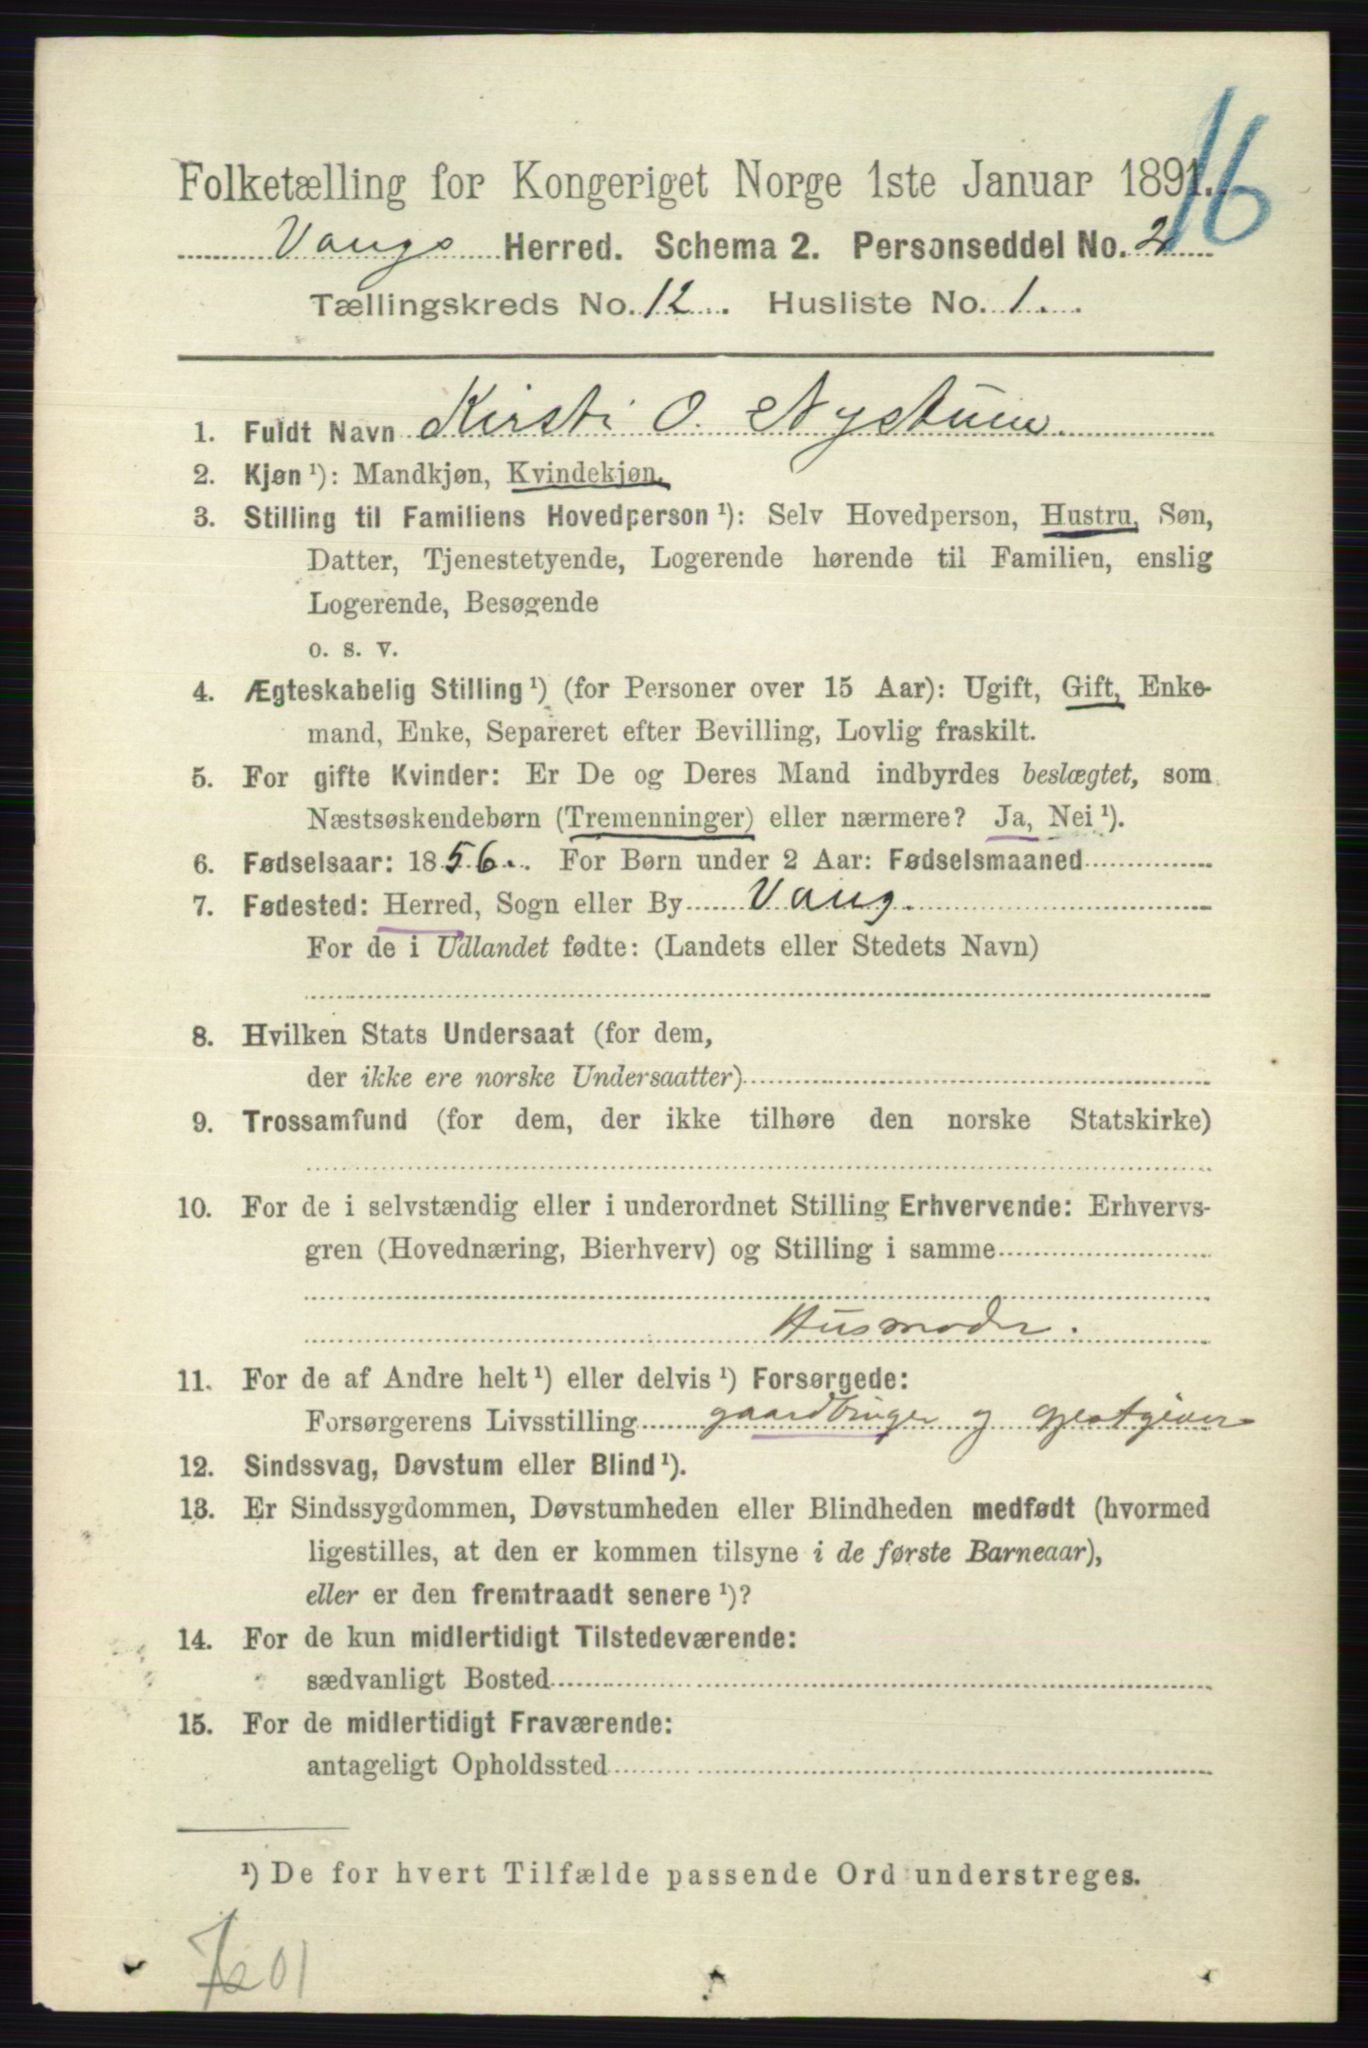 16
Folketælling for Kongeriget Norge 1ste Januar 1891.
Vangs Herred. Schema 2. Personseddel No. 2
Tællingskreds No. 12. Husliste No. 1.
1. Fuldt Navn Kirsti O. Nystuen
2. Kjøn ¹): Mandkjøn, Kvindekjøn.
3. Stilling til Familiens Hovedperson ¹): Selv Hovedperson, Hustru, Søn,
Datter, Tjenestetyende, Logerende hørende til Familien, enslig
Logerende, Besøgende
o. s. v.
4. Ægteskabelig Stilling ¹) (for Personer over 15 Aar): Ugift, Gift, Enke-
mand, Enke, Separeret efter Bevilling, Lovlig fraskilt.
5. For gifte Kvinder: Er De og Deres Mand indbyrdes beslægtet, som
Næstsøskendebørn (Tremenninger) eller nærmere? Ja, Nei ¹).
6. Fødselsaar: 1856. For Børn under 2 Aar: Fødselsmaaned
7. Fødested: Herred, Sogn eller By Vang.
For de i Udlandet fødte: (Landets eller Stedets Navn)
8. Hvilken Stats Undersaat (for dem,
der ikke ere norske Undersaatter)
9. Trossamfund (for dem, der ikke tilhøre den norske Statskirke)
10. For de i selvstændig eller i underordnet Stilling Erhvervende: Erhvervs-
gren (Hovednæring, Bierhverv) og Stilling i samme
Husmoder.
11. For de af Andre helt ¹) eller delvis ¹) Forsørgede:
Forsørgerens Livsstilling gaardbruger og gjestgiver
12. Sindssvag, Døvstum eller Blind ¹).
13. Er Sindssygdommen, Døvstumheden eller Blindheden medfødt (hvormed
ligestilles, at den er kommen tilsyne i de første Barneaar),
eller er den fremtraadt senere ¹)?
14. For de kun midlertidigt Tilstedeværende:
sædvanligt Bosted
15. For de midlertidigt Fraværende:
antageligt Opholdssted
¹) De for hvert Tilfælde passende Ord understreges.